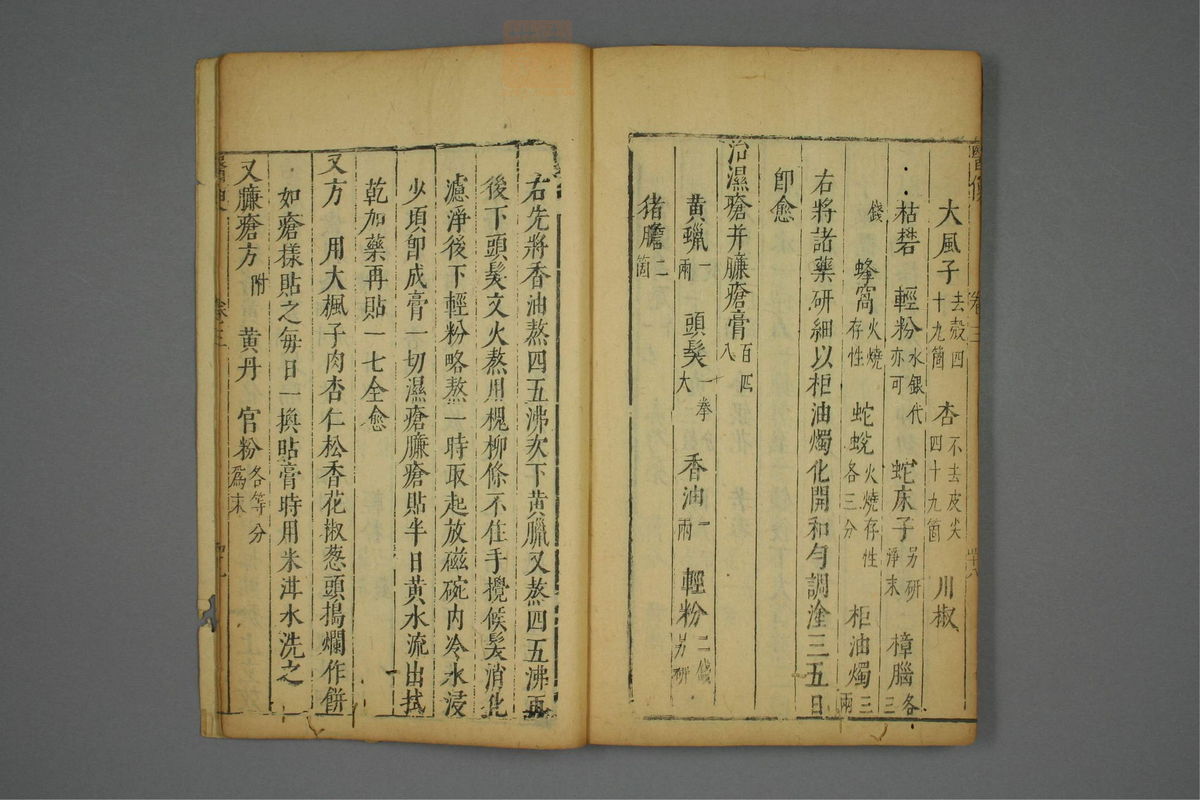 大風子去殼四十九箇　杏不去皮尖四十九箇　川椒
枯礬　輕粉水銀代亦可　蛇床子另研淨末　樟腦各三
錢　蜂窩火燒存性　蛇蛻火燒存性各三分　柜油燭三兩
右將諸藥研細以柜油燭化開和勻調塗三五日
卽愈
治濕瘡并臁瘡膏百四八
黄蠟一兩　頭髮一拳大　香油一兩　輕粉二錢另研
猪膽二箇
右先將香油熬四五沸次下黄臘又熬四五沸再
後下頭髮文火熬用槐柳條不住手攪候髮消化
濾淨後下輕粉略熬一時取起放磁碗内冷水浸
少頃卽成膏一切濕瘡臁瘡貼半日黄水流出拭
乾加藥再貼一七全愈
又方　用大楓子肉杏仁松香花椒葱頭搗爛作餅
如瘡樣貼之每日一換貼膏時用米泔水洗之
又臁瘡方附　黄丹　官粉各等分爲末